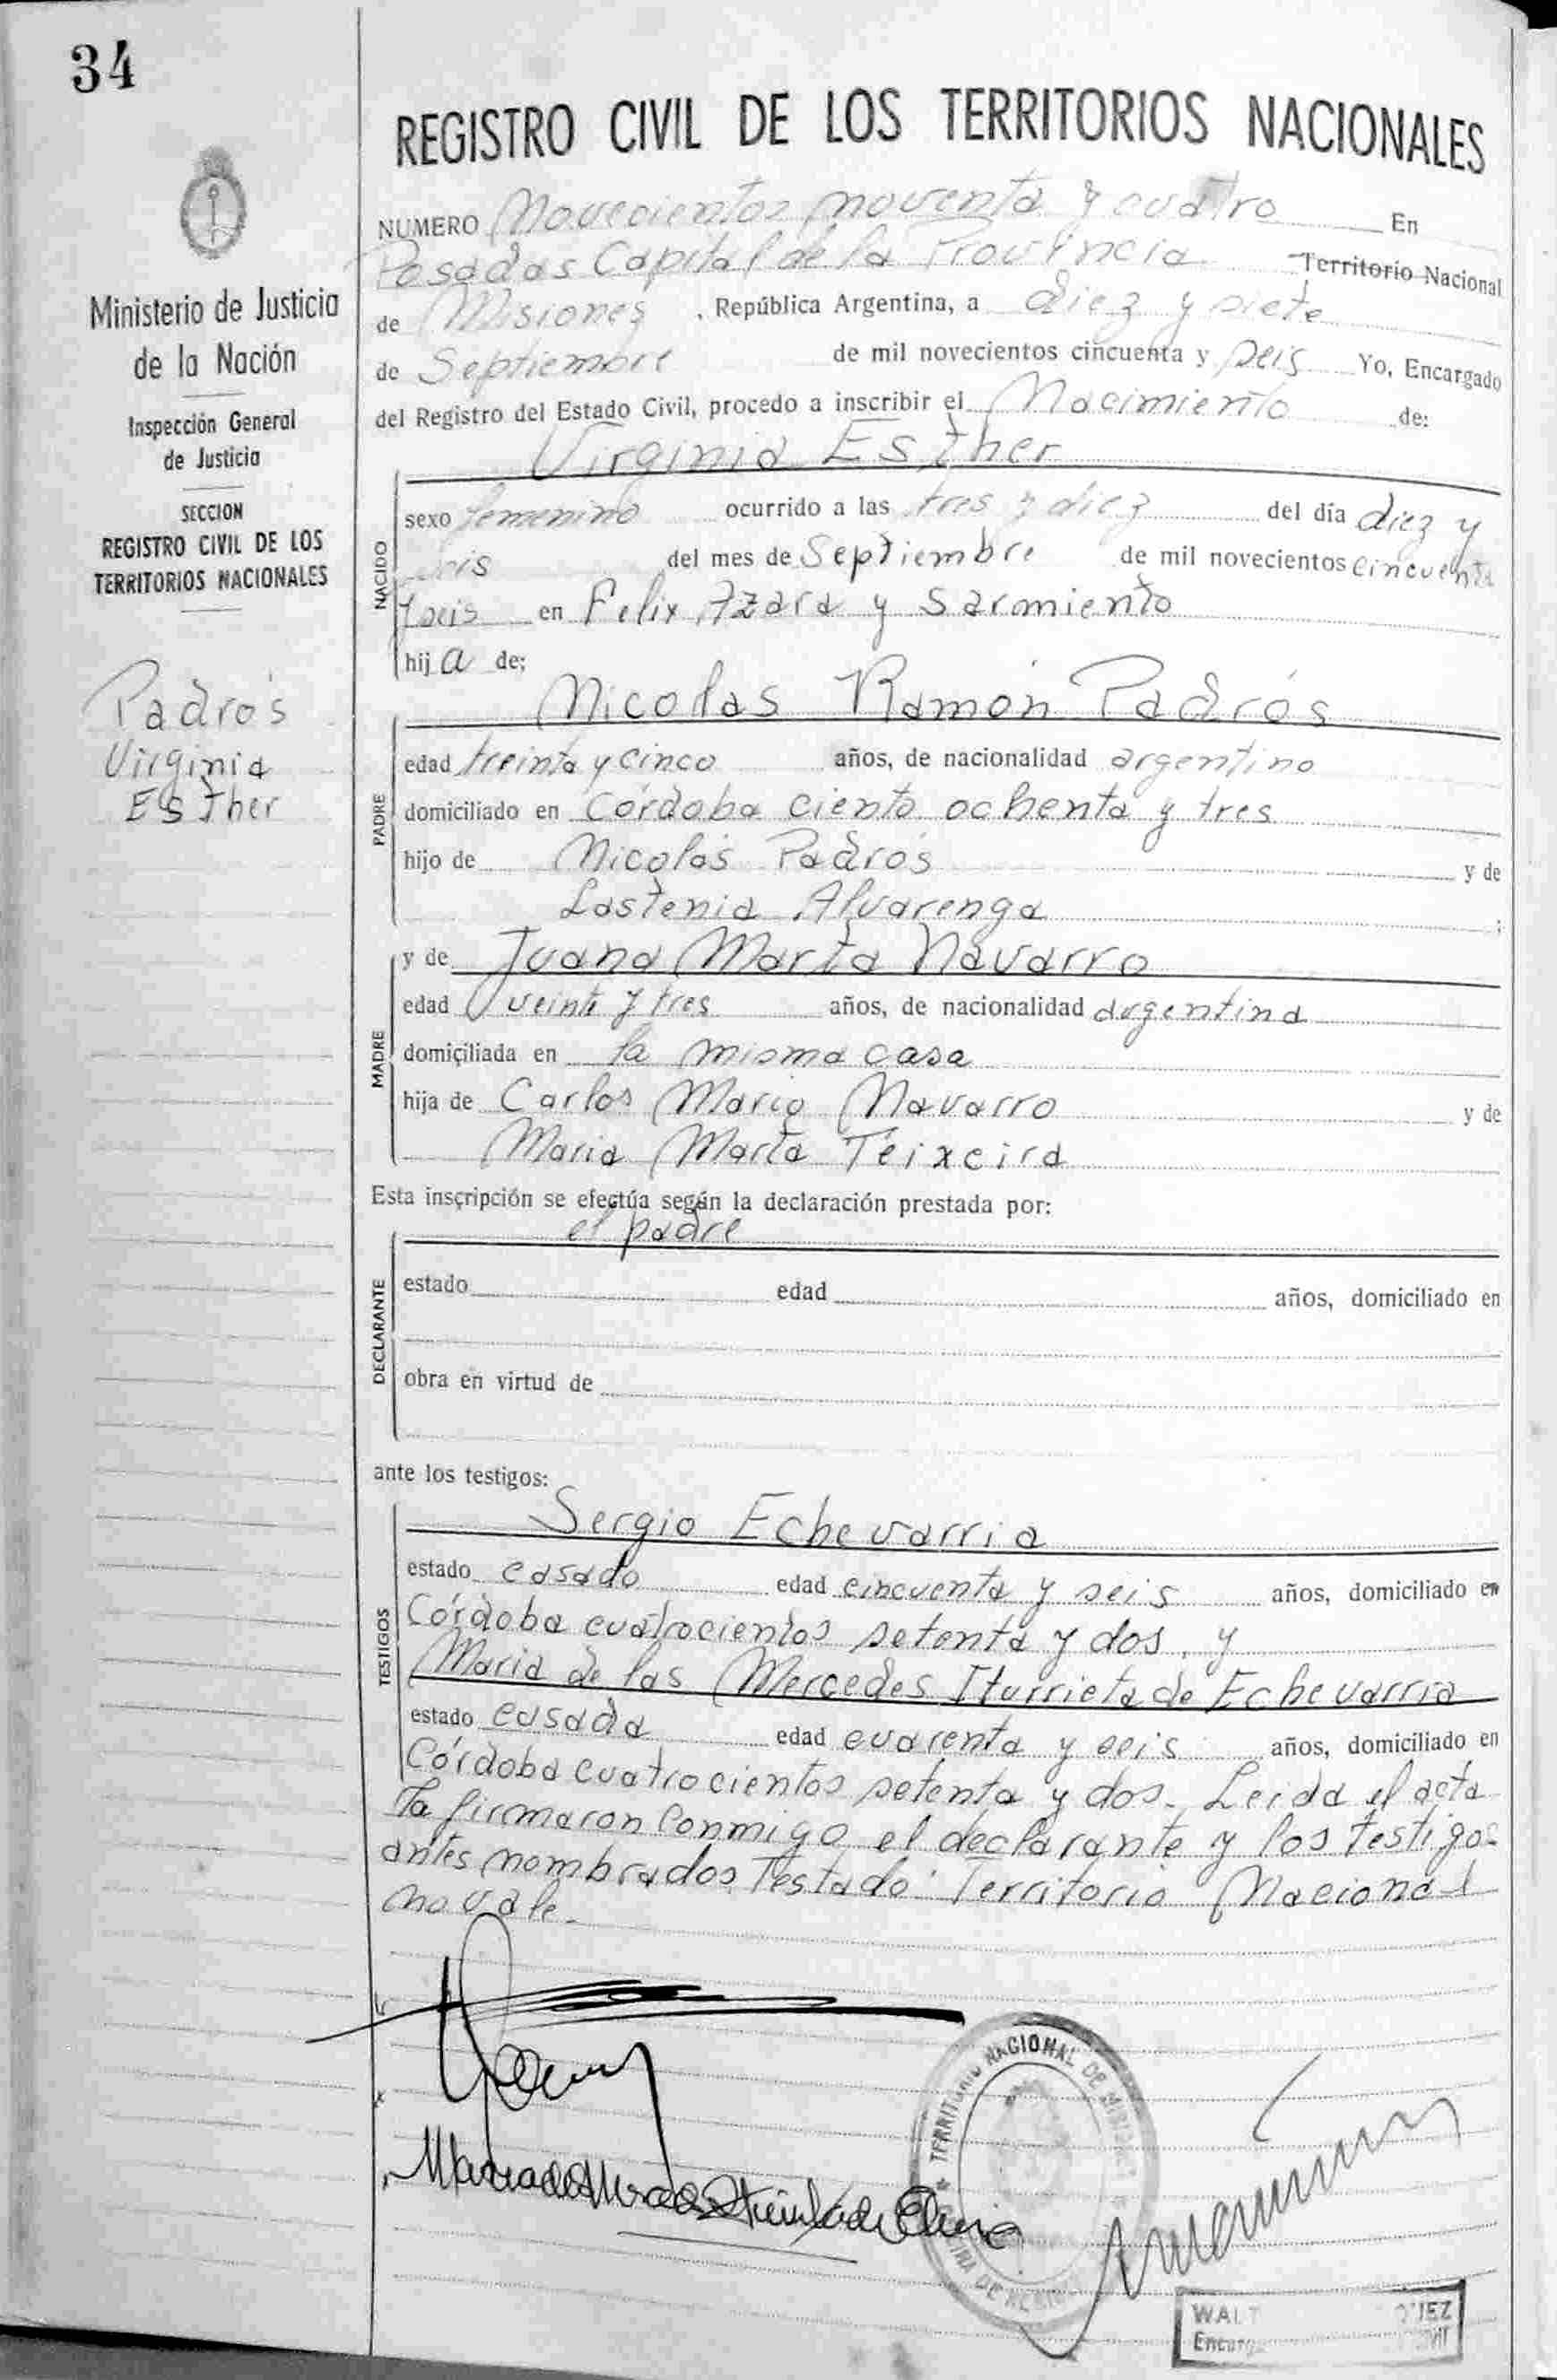 34
Ministerio de Justicia
de la Nación
Inspección General
de Justicia
SECCION
REGISTRO CIVIL DE LOS
TERRITORIOS NACIONALES
Padrós
Virginia
Esther
REGISTRO CIVIL DE LOS TERRITORIOS NACIONALES
NUMERO Novecientos noventa y cuatro En
Posadas Capital de la Provincia Territorio Nacional
de Misiones, República Argentina, a diez y siete
de Septiembre de mil novecientos cincuenta y seis Yo, Encargado
del Registro del Estado Civil, procedo a inscribir el Nacimiento de:
Virginia Esther
NACIDO
sexo femenino ocurrido a las tres y diez del día diez y
seis del mes de Septiembre de mil novecientos cincuenta
y seis en Felix Azara y Sarmiento
hija de:
Nicolas Ramón Padrós
PADRE
edad treinta y cinco años, de nacionalidad argentino
domiciliado en Córdoba ciento ochenta y tres
hijo de Nicolás Padrós y de
Lastenia Alvarenga;
MADRE
y de Juana Marta Navarro
edad veinte y tres años, de nacionalidad argentina
domiciliada en la misma casa
hija de Carlos Mario Navarro y de
Maria Marta Teixeira
Esta inscripción se efectúa según la declaración prestada por:
el padre
DECLARANTE
estado edad años, domiciliado en
obra en virtud de
ante los testigos:
Sergio Echevarria
TESTIGOS
estado casado edad cincuenta y seis años, domiciliado en
Córdoba cuatrocientos setenta y dos, y
Maria de las Mercedes Iturrieta de Echevarria
estado casada edad cuarenta y seis años, domiciliado en
Córdoba cuatrocientos setenta y dos. Leida el acta
la firmaron conmigo el declarante y los testigos
antes nombrados Testado: Territorio Nacional
no vale.
TERRITORIO NACIONAL DE